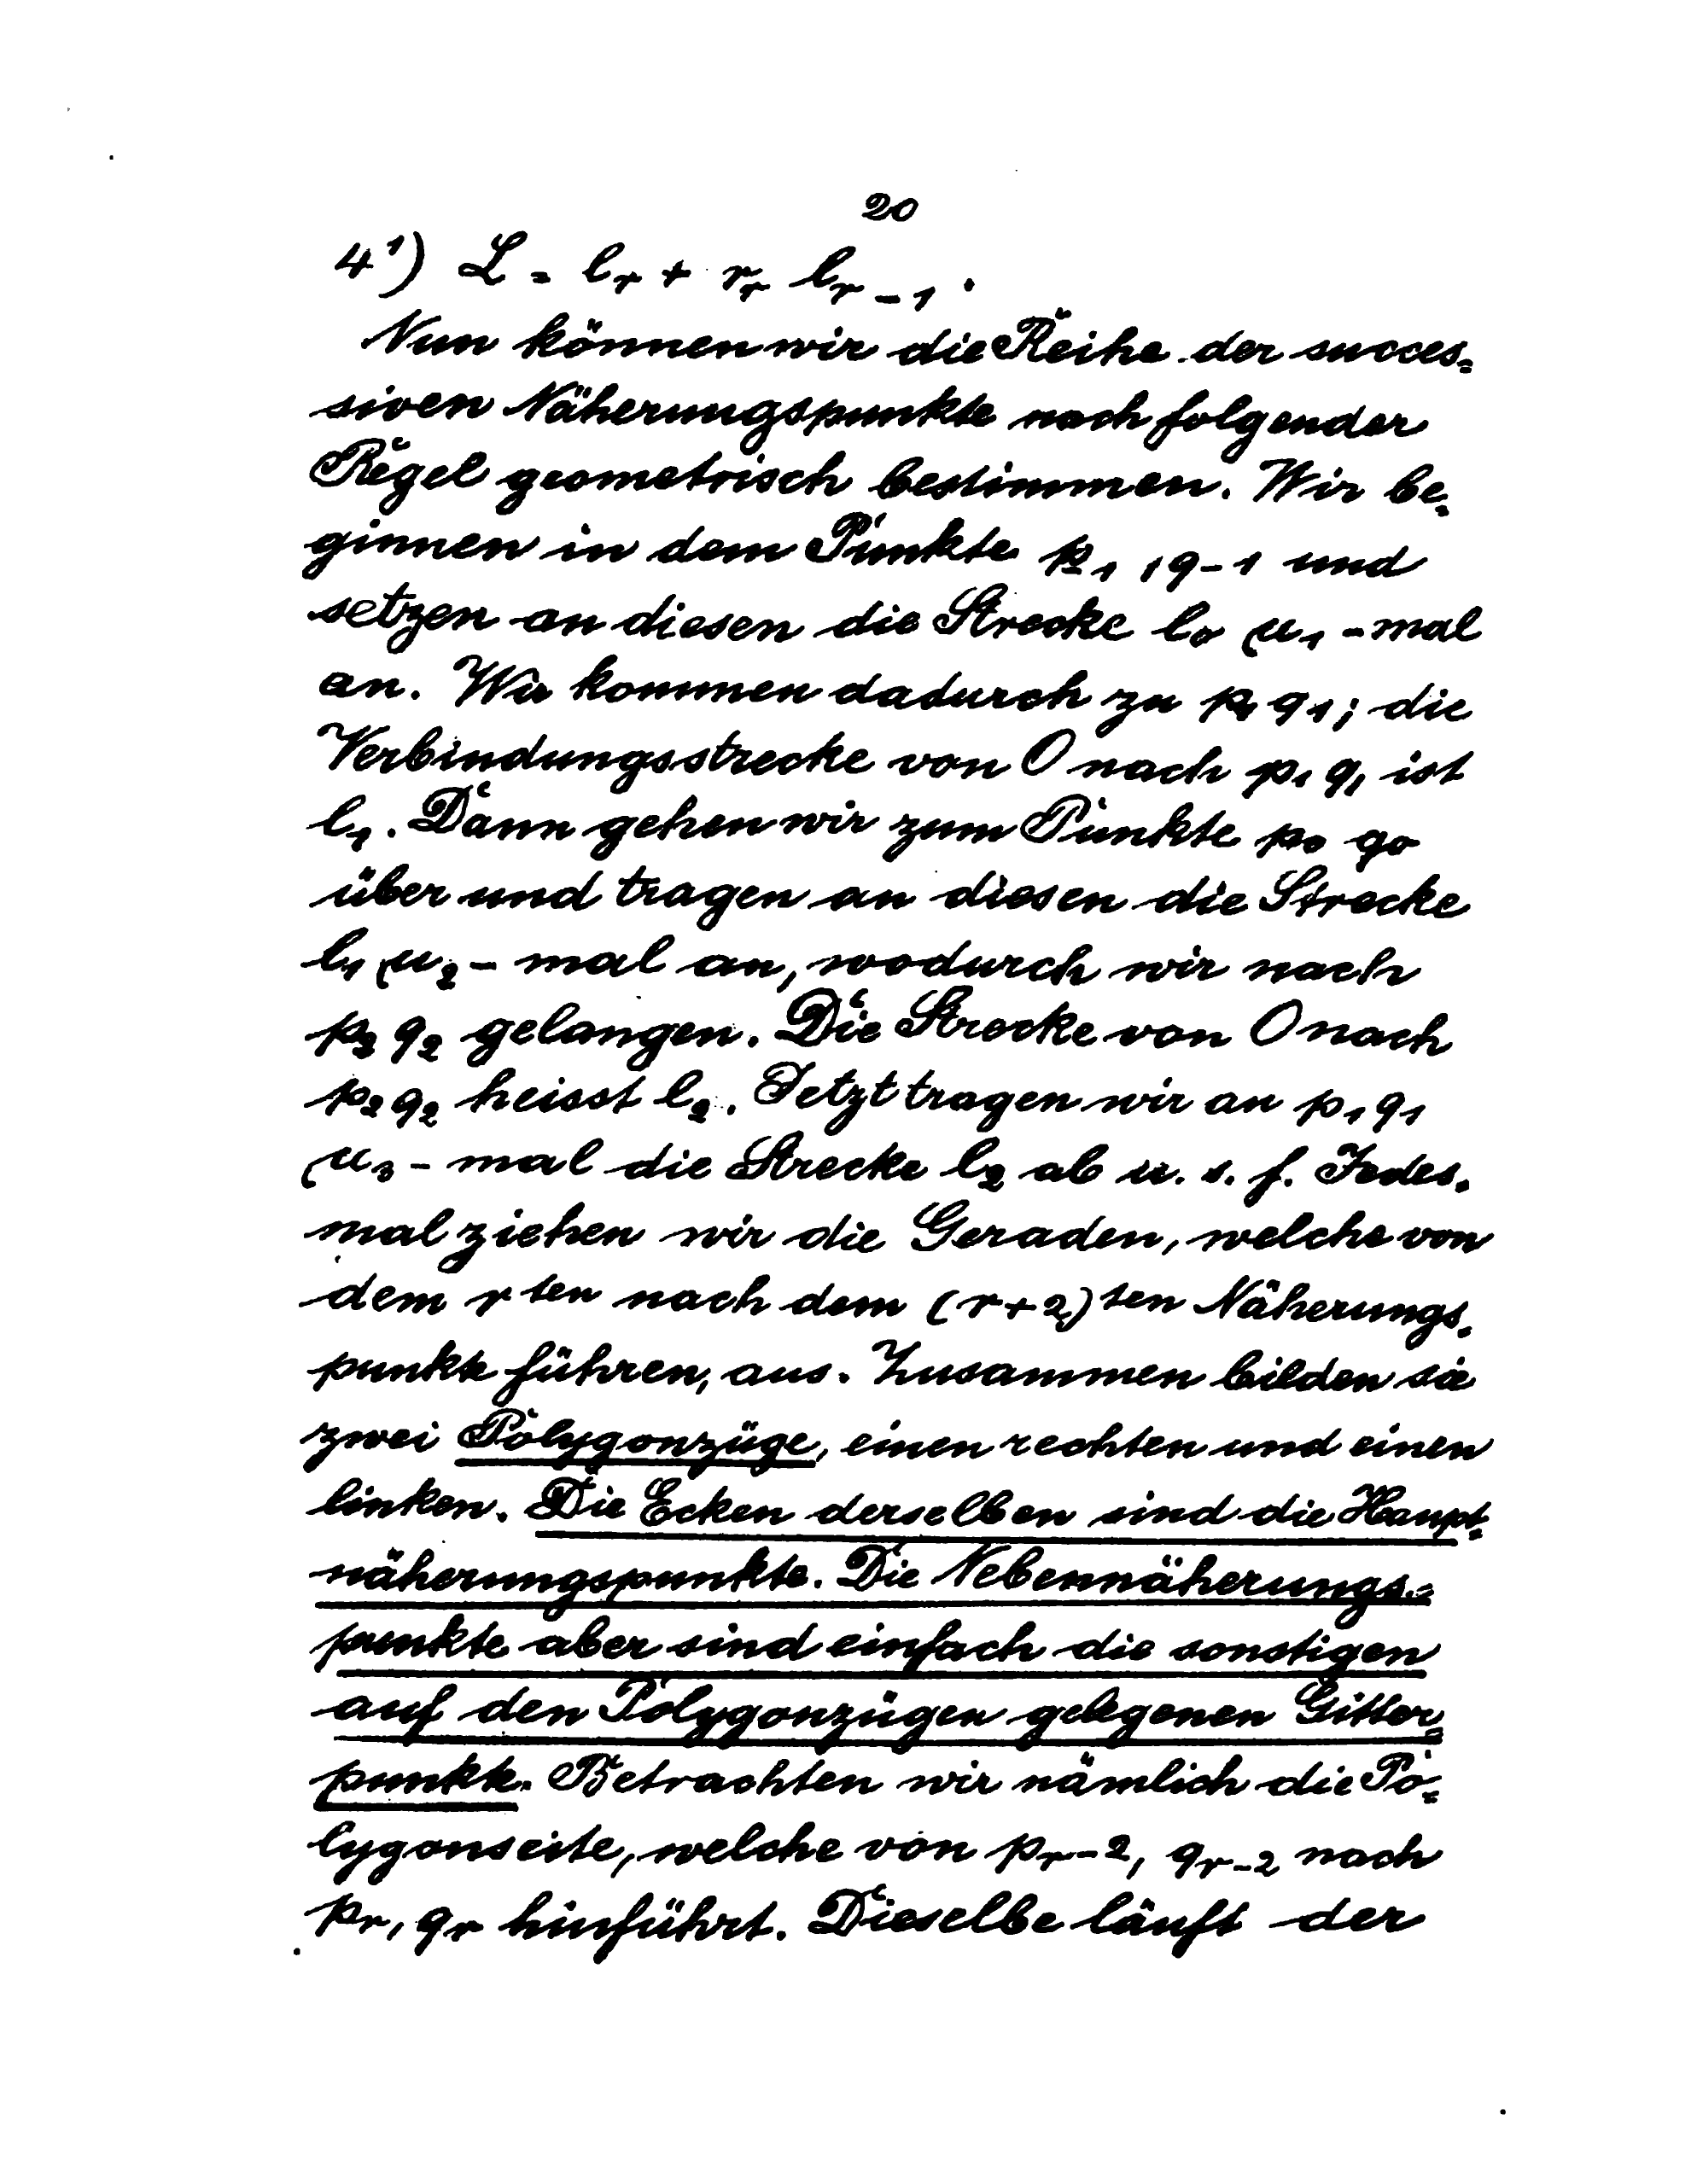 20
4¹) L = lᵣ + rᵣ lᵣ₋₁.
Nun können wir die Reihe der succes=
siven Näherungspunkte nach folgender
Regel geometrisch bestimmen. Wir be=
ginnen in dem Punkte p₋₁, q₋₁ und
setzen an diesen die Strecke l₀ μ₁-mal
an. Wir kommen dadurch zu p₁ q₁; die
Verbindungsstrecke von O nach p₁ q₁ ist
l₁. Dann gehen wir zum Punkte p₀ q₀
über und tragen an diesen die Strecke
l₁ μ₂-mal an, wodurch wir nach
p₂ q₂ gelangen. Die Strecke von O nach
p₂ q₂ heisst l₂. Jetzt tragen wir an p₁ q₁
μ₃-mal die Strecke l₂ ab u. s. f. Jedes=
mal ziehen wir die Geraden, welche von
dem r ten nach dem (r+2) ten Näherungs=
punkte führen, aus. Zusammen bilden sie
zwei Polygonzüge, einen rechten und einen
linken. Die Ecken derselben sind die Haupt=
näherungspunkte. Die Nebennäherungs=
punkte aber sind einfach die sonstigen
auf den Polygonzügen gelegenen Gitter=
punkte. Betrachten wir nämlich die Po=
lygonseite, welche von pᵣ₋₂, qᵣ₋₂ nach
pᵣ, qᵣ hinführt. Dieselbe läuft der